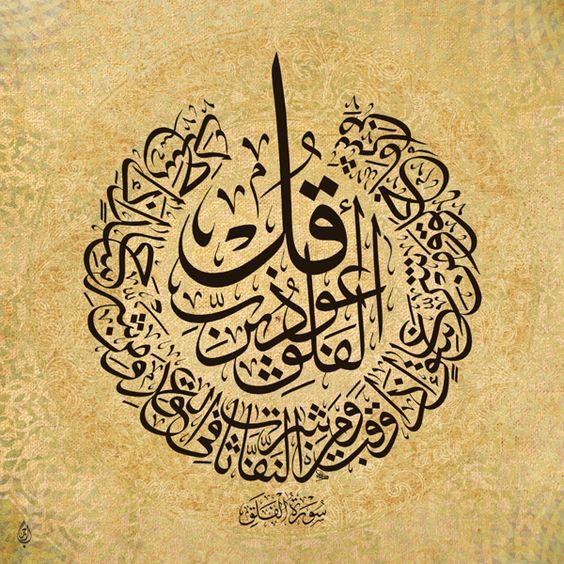 قُلْ أَعُوذُ بِرَبِّ الْفَلَقِ
مِن شَرِّ مَا خَلَقَ وَمِن شَرِّ غَاسِقٍ إِذَا وَقَبَ وَمِن شَرِّ النَّفَّاثَاتِ فِي الْعُقَدِ وَمِن شَرِّ حَاسِدٍ إِذَا حَسَدَ
سُورَةُ الْفَلَقِ